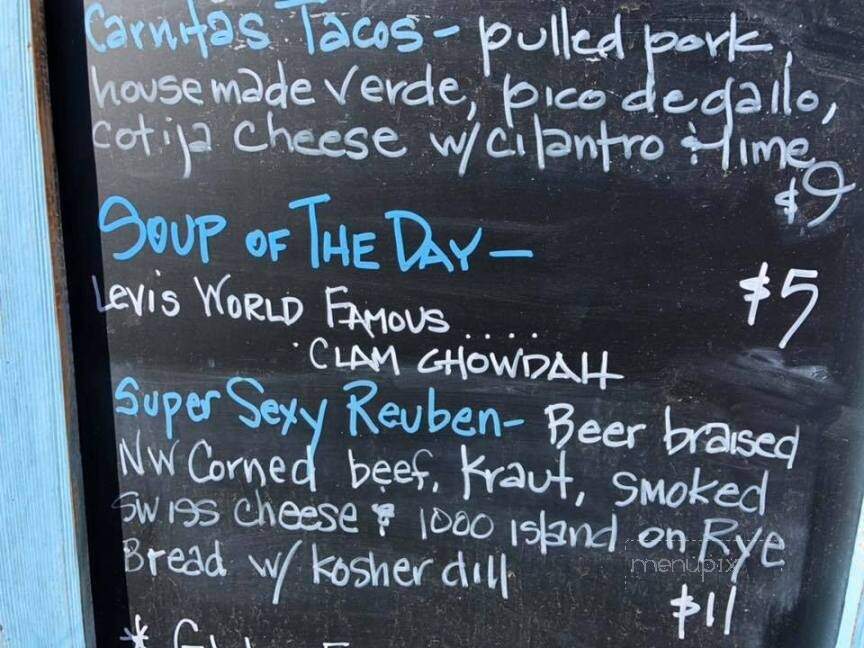 Carnitas Tacos - pulled pork,
house made verde, pico de gallo,
cotija cheese w/cilantro & lime
$9
SOUP OF THE DAY -
Levis WORLD FAMOUS ....
$5
CLAM CHOWDAH
Super Sexy Reuben - Beer braised
NW Corned beef, Kraut, smoked
swiss cheese & 1000 island on Rye
Bread w/ kosher dill
menupix
$11
*